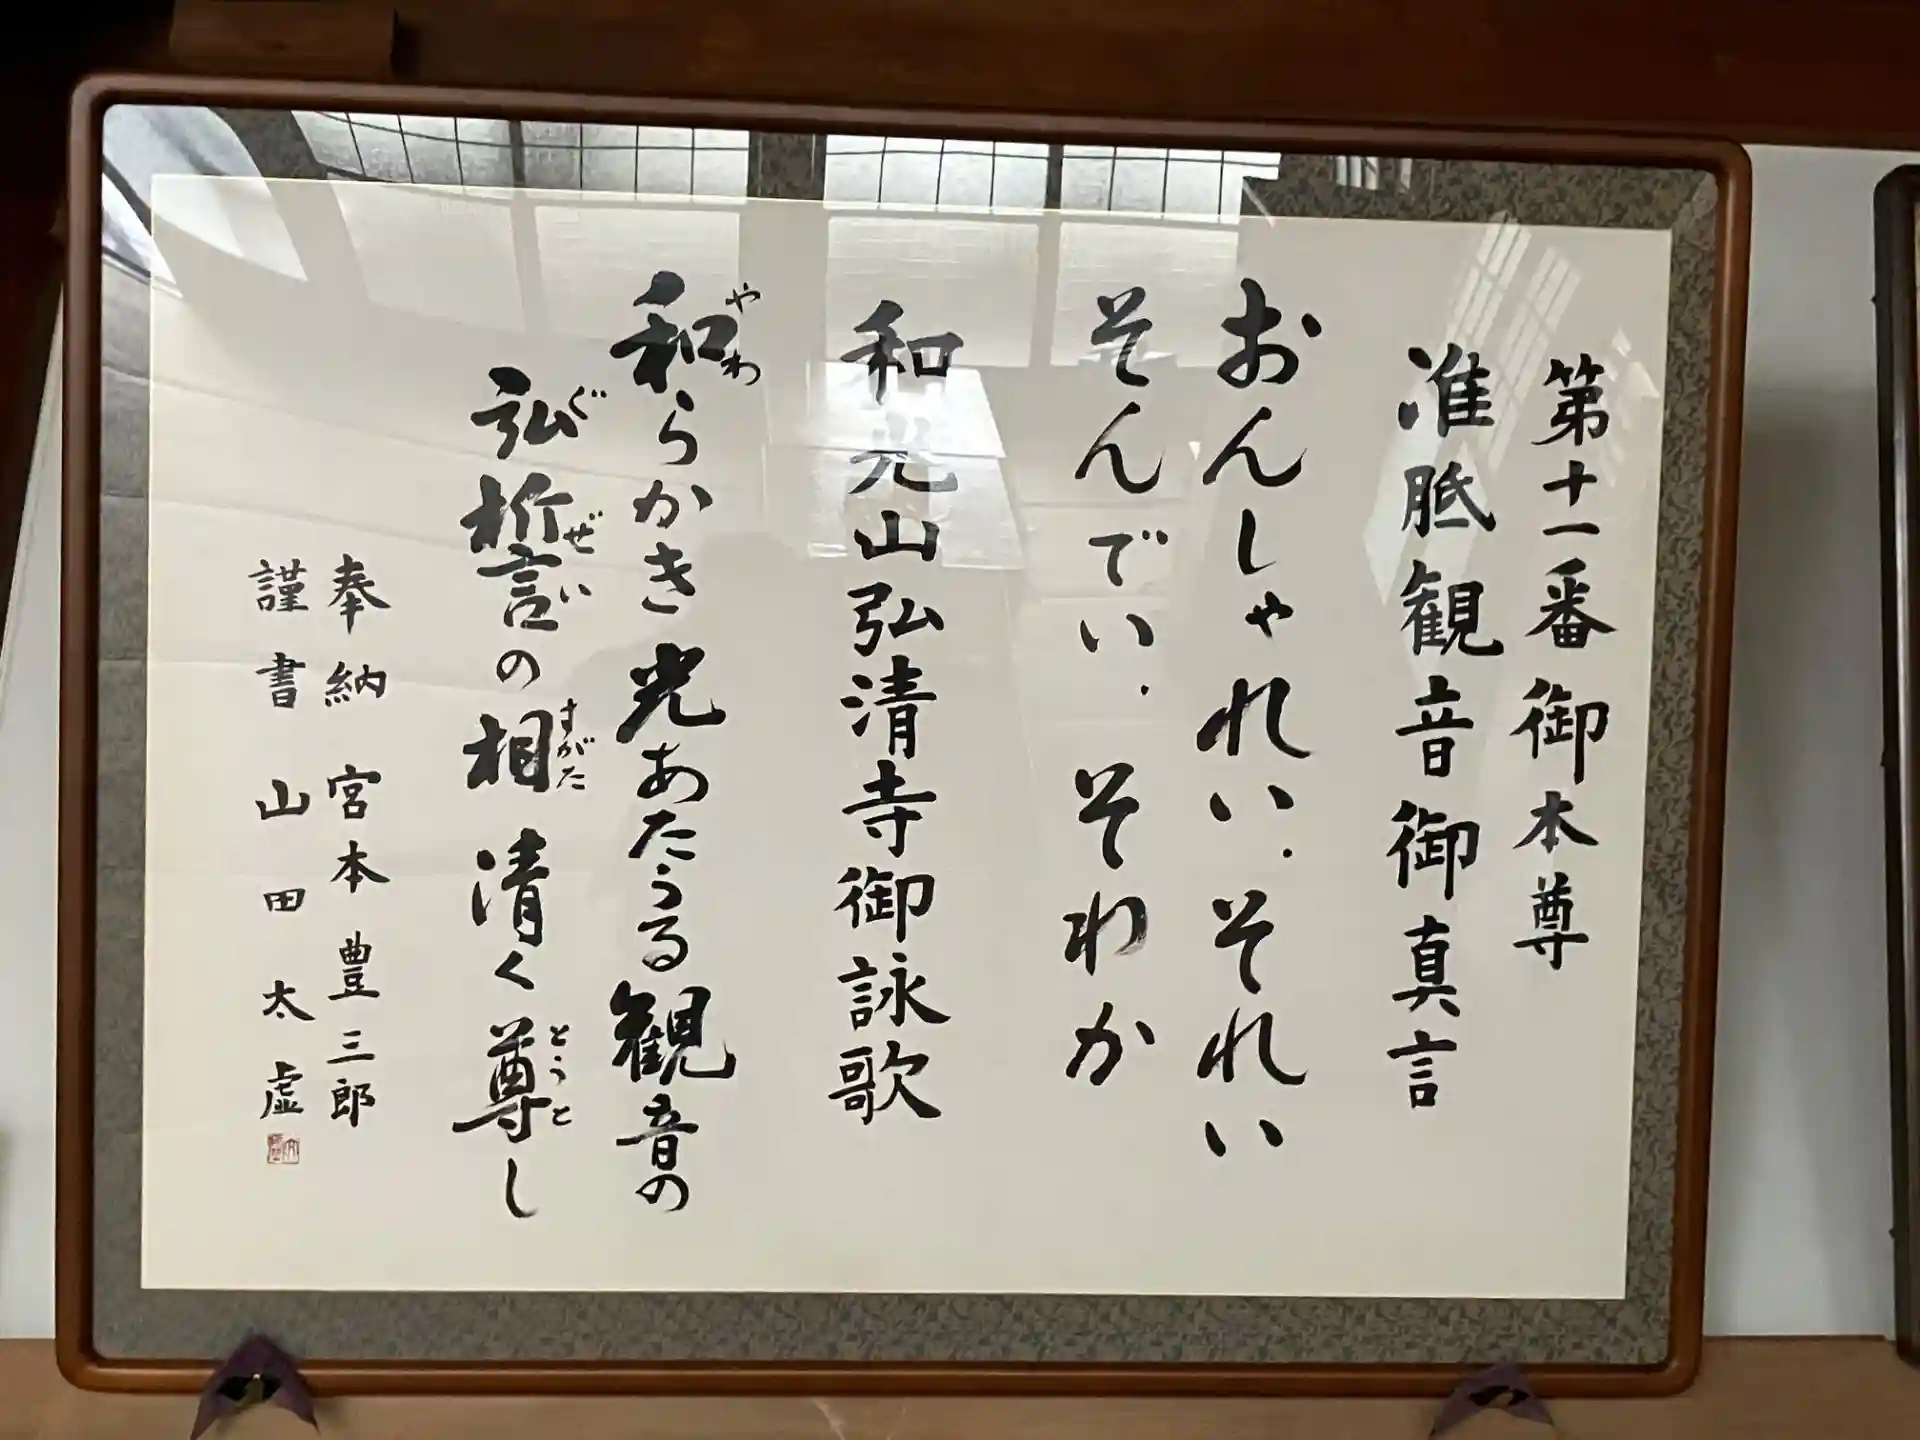 第十一番御本尊
准胝観音御真言
おんしゃれい.それい
そんでい.そわか
和光山弘清寺御詠歌
和らかき光あたうる観音の
やわ
弘誓の相清く尊し
ぐ ぜい すがた とうと
奉納 宮本豊三郎
謹書 山田太虚